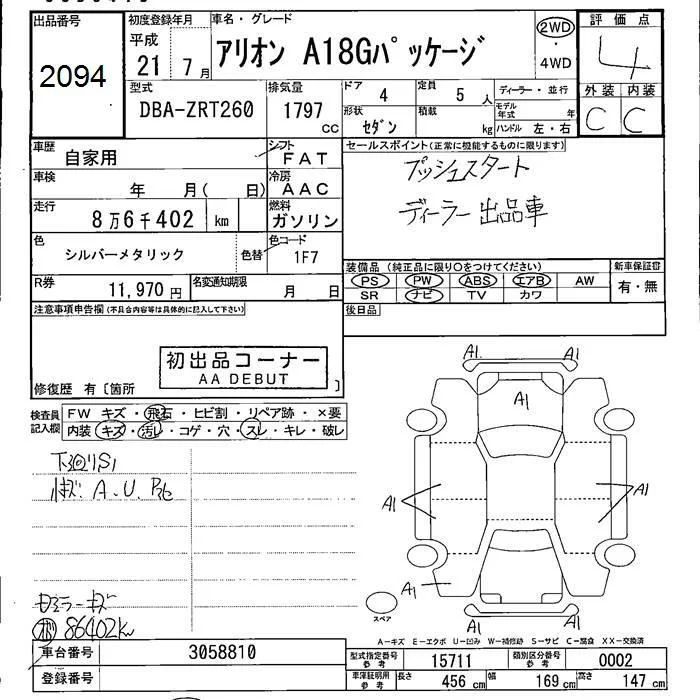 出品番号
2094
初度登録年月
平成
21 7月
車名・グレード
アリオン A18Gパッケージ
2WD
・
4WD
評価点
4
外装 内装
C C
型式
DBA-ZRT260
排気量
1797
CC
ドア 4
定員 5 人
ディーラー・並行
モデル年式 年
形状 セダン
積載 kg
ハンドル 左・右
車歴 自家用
シフト FAT
車検 年 月( 日)
冷房 AAC
走行 8万6千402 km
燃料 ガソリン
色 シルバーメタリック
色替
色コード 1F7
R券 11,970円
名変通知期限 月 日
セールスポイント(正常に機能するものに限ります)
プッシュスタート
ディーラー出品車
装備品(純正品に限り○をつけてください)
PS PW ABS エアB AW
SR ナビ TV カワ
新車保証書
有・無
後日品
注意事項申告欄(不具合内容等は具体的に記入して下さい)
初出品コーナー
AA DEBUT
修復歴 有〔箇所 〕
検査員記入欄
FW キズ・飛石・ヒビ割・リペア跡・×要
内装 キズ・汚レ・コゲ・穴・スレ・キレ・破レ
下廻りS1
A.U.
キズ
86402km
A1. A1
A1
A1 A1
A1
A1
スペア
A-キズ E-エクボ U-凹み W-補修跡 S-サビ C-腐食 XX-交換済
車台番号 3058810
登録番号
型式指定番号参考 15711
類別区分番号参考 0002
車庫証明用参考
長さ 456 cm
幅 169 cm
高さ 147 cm